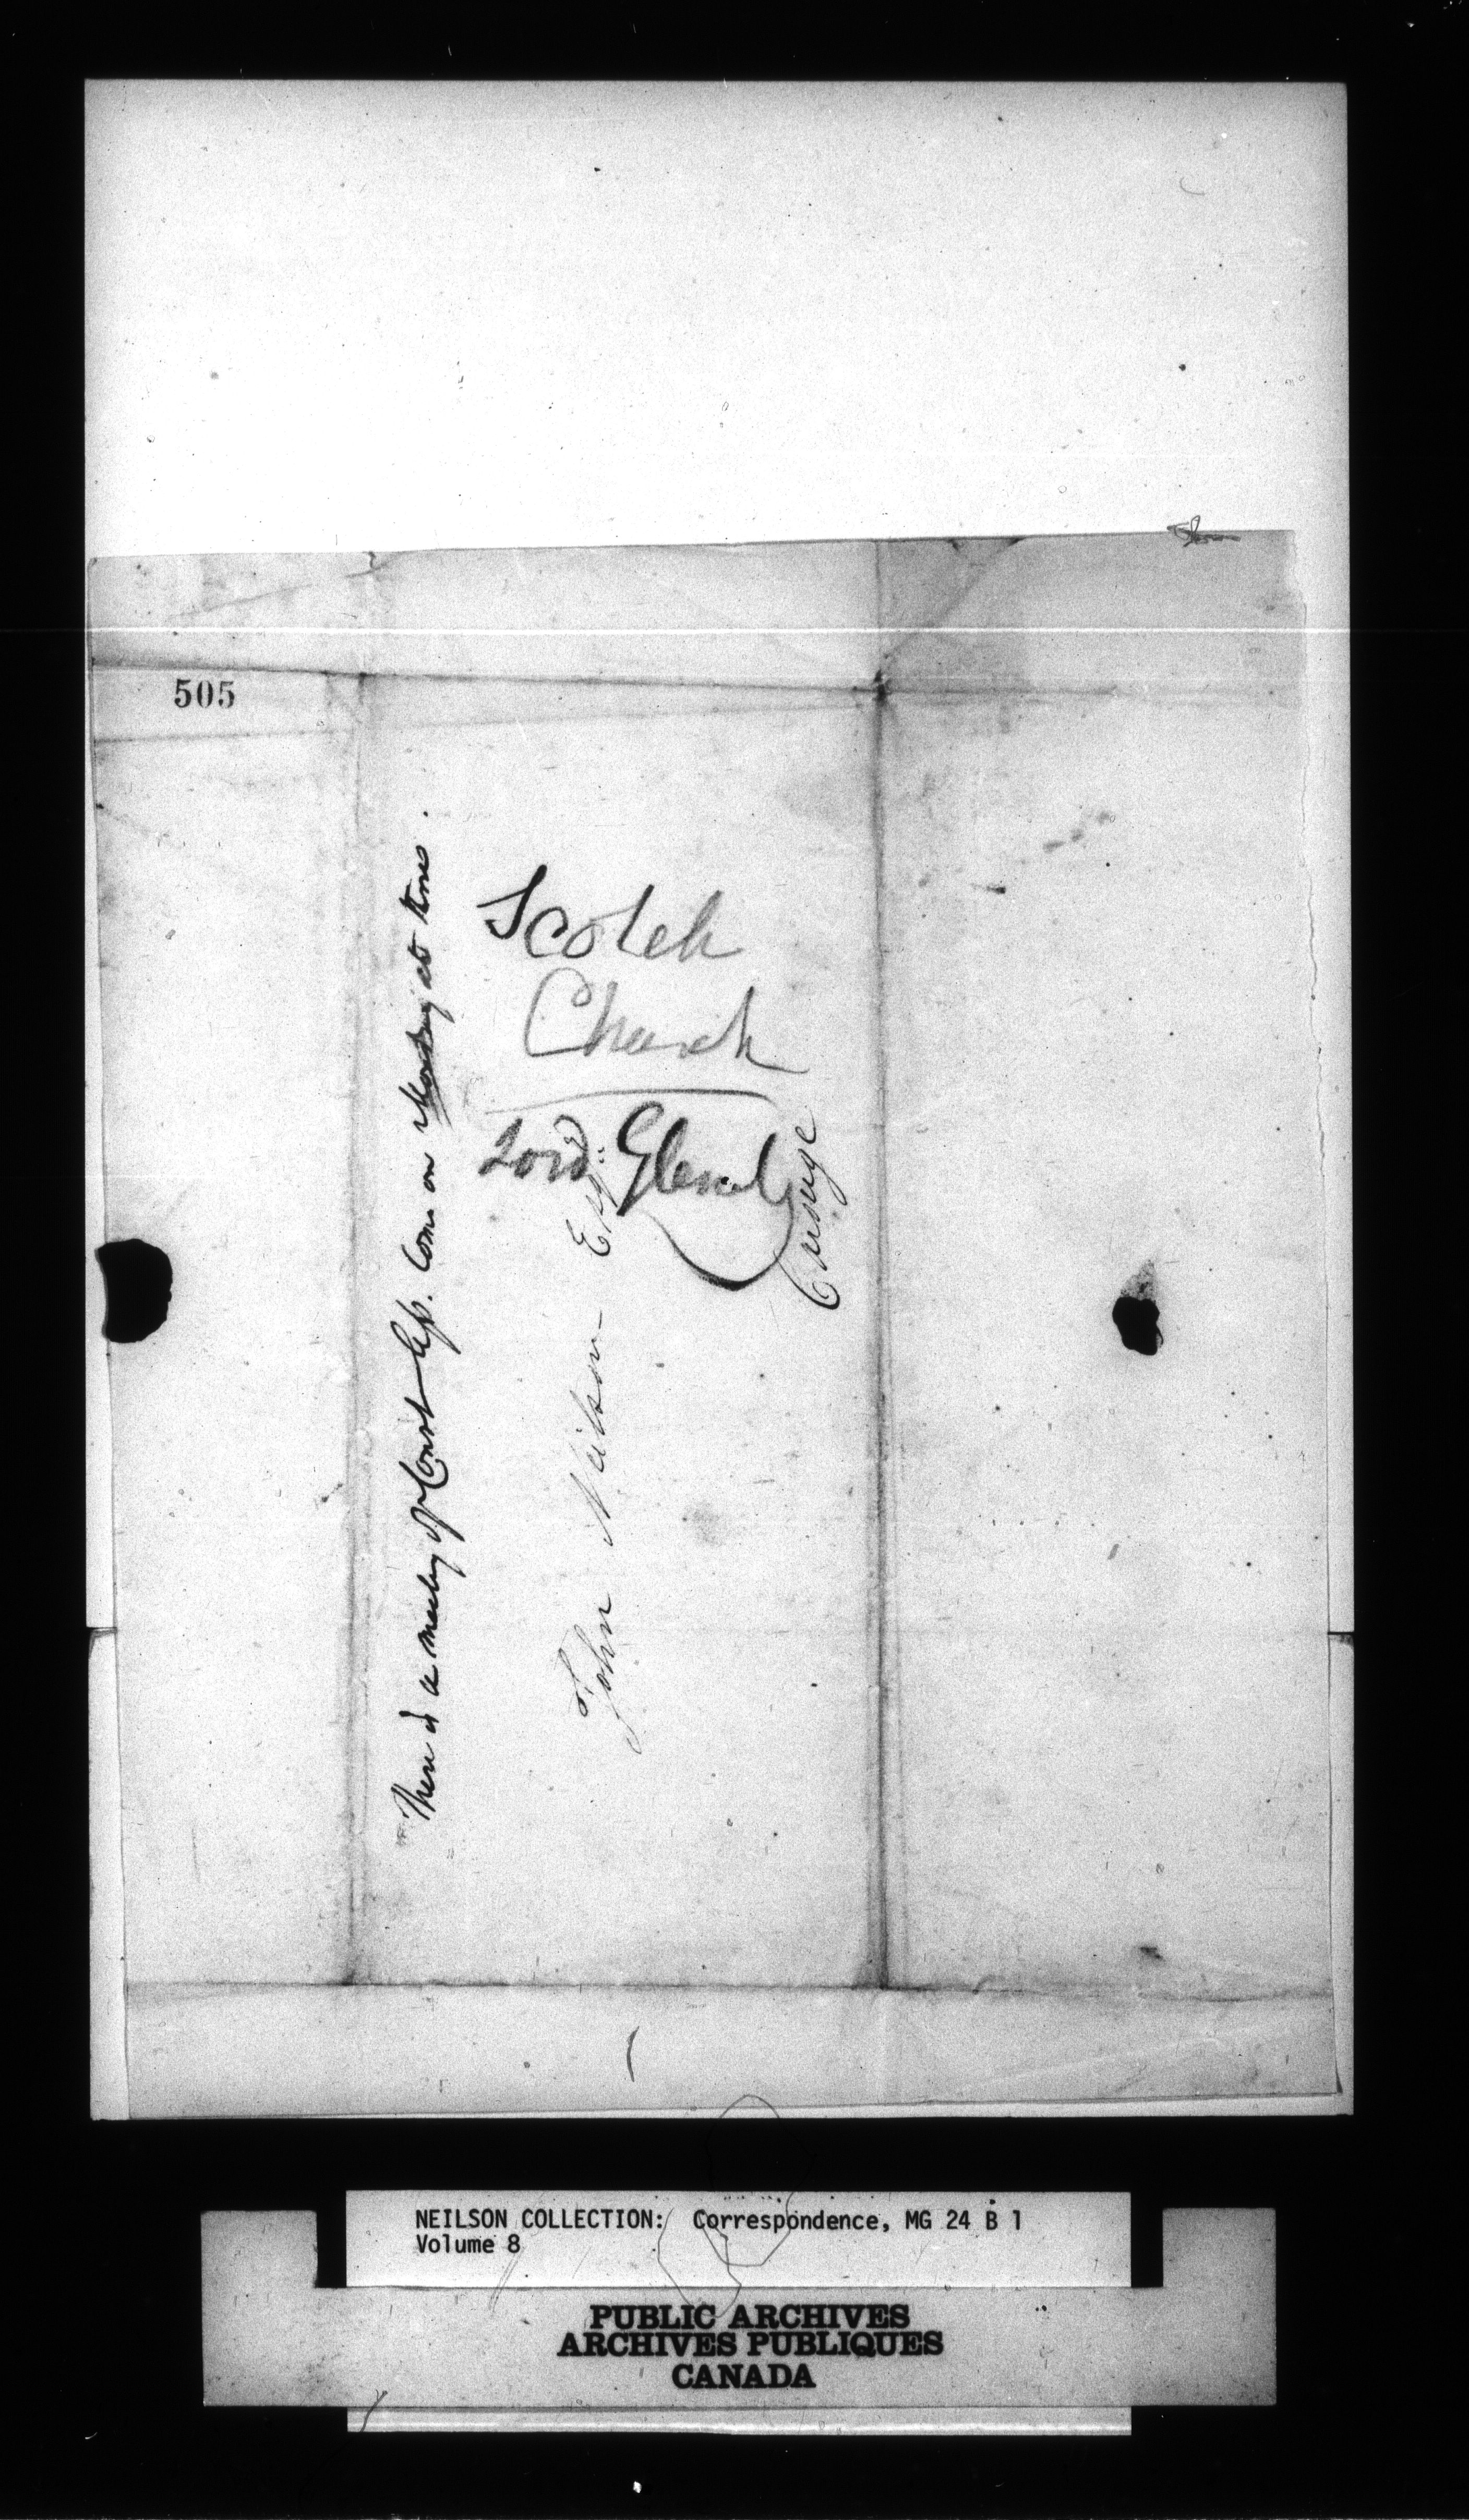 505
There is a meeting of Const. Ass. Com. on Monday at three.
Scotch
Church
Lord Glenelg
John Neilson Esq.
Cresuge
NEILSON COLLECTION: Correspondence, MG 24 B 1
Volume 8
PUBLIC ARCHIVES
ARCHIVES PUBLIQUES
CANADA